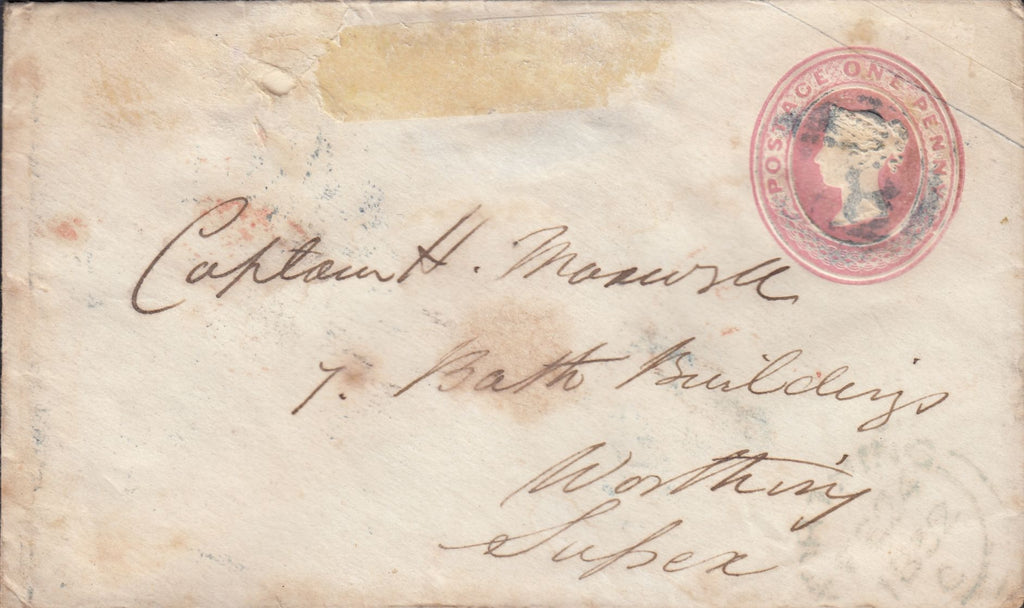 POSTAGE ONE PENNY
Captain H. Maxwell
7. Bath Buildings
Worthing
Sussex